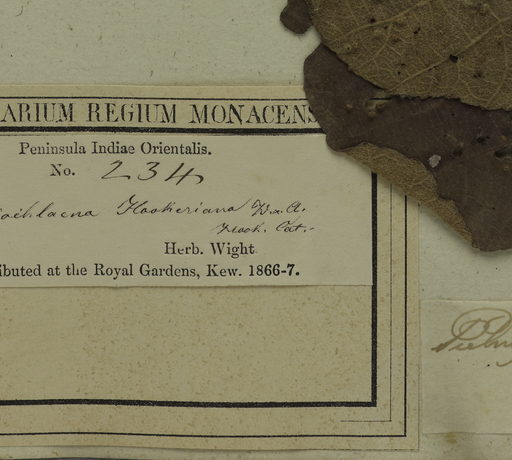 ARIUM REGIUM MONACENS
Peninsula Indiae Orientalis.
No. 234
Hookeriana W.&A.
Cat.
Herb. Wight
ibuted at the Royal Gardens, Kew. 1866-7.